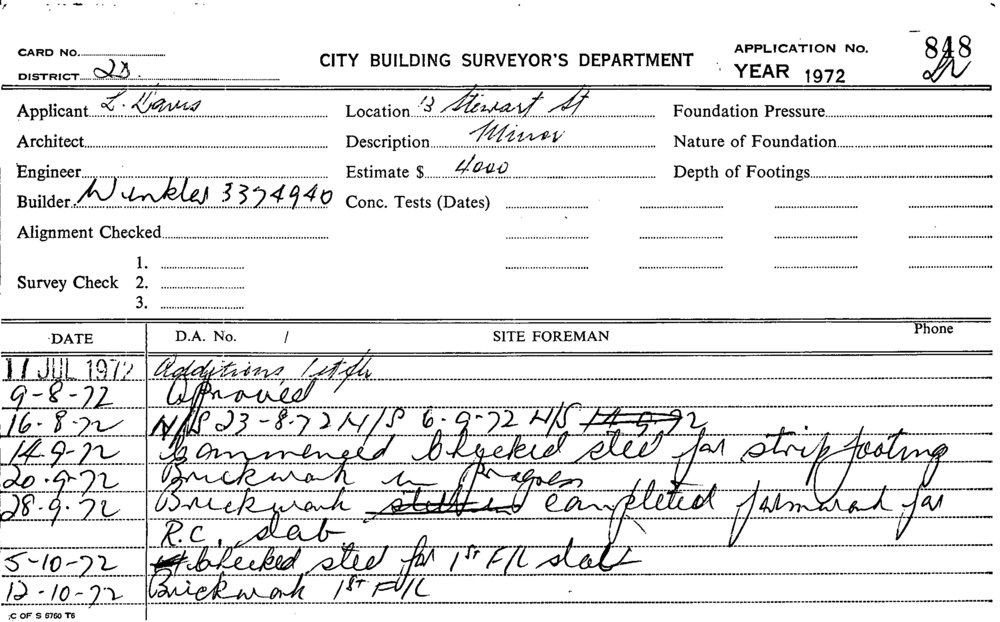 CARD NO.
CITY BUILDING SURVEYOR'S DEPARTMENT
APPLICATION No. 848
DISTRICT 2D.
YEAR 1972
Applicant L. Davis
Location 13 Stewart St
Foundation Pressure
Architect
Description Minor
Nature of Foundation
Engineer
Estimate $ 4000
Depth of Footings
Builder Winkler 3374940
Conc. Tests (Dates)
Alignment Checked
Survey Check 1.
2.
3.
DATE D.A. No. / SITE FOREMAN Phone
11 JUL 1972 Additions 1st flr
9-8-72 Approved
16-8-72 N/S 23-8-72 N/S 6-9-72 N/S 14-9-72
14-9-72 Commenced Checked steel for strip footing
20-9-72 Brickwork in progress
28-9-72 Brickwork completed formwork for
R.C. slab
5-10-72 Checked steel for 1ST F/L slab
12-10-72 Brickwork 1ST F/L
C OF S 6760 T6